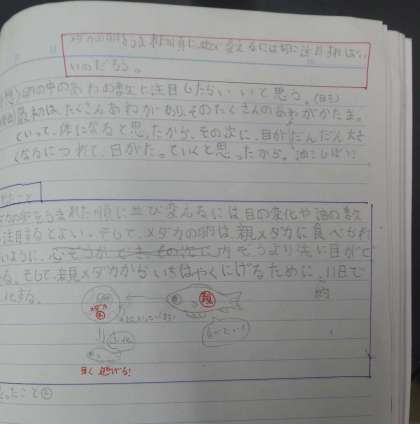 メダカの卵をうまれた順に並び変えるには何に注目すればい
いのだろう。
卵の中のあわの数に注目したらいいと思う。
最初は、たくさんあわがあり、そのたくさんのあわがかたま
っていって、体になると思ったから。その次に、目がだんだん大き
くなるにつれて、日がたっていくと思ったから。
うまれた順に並び変えるには目の変化や油の数
に注目するとよい。そして、メダカの卵は、親メダカに食べられ
ないように、心ぞうができその次に内ぞうより先に目がで
る。そして、親メダカからいちはやくにげるために、11日で
約
化する。
親
食べたい!
早く逃げる!